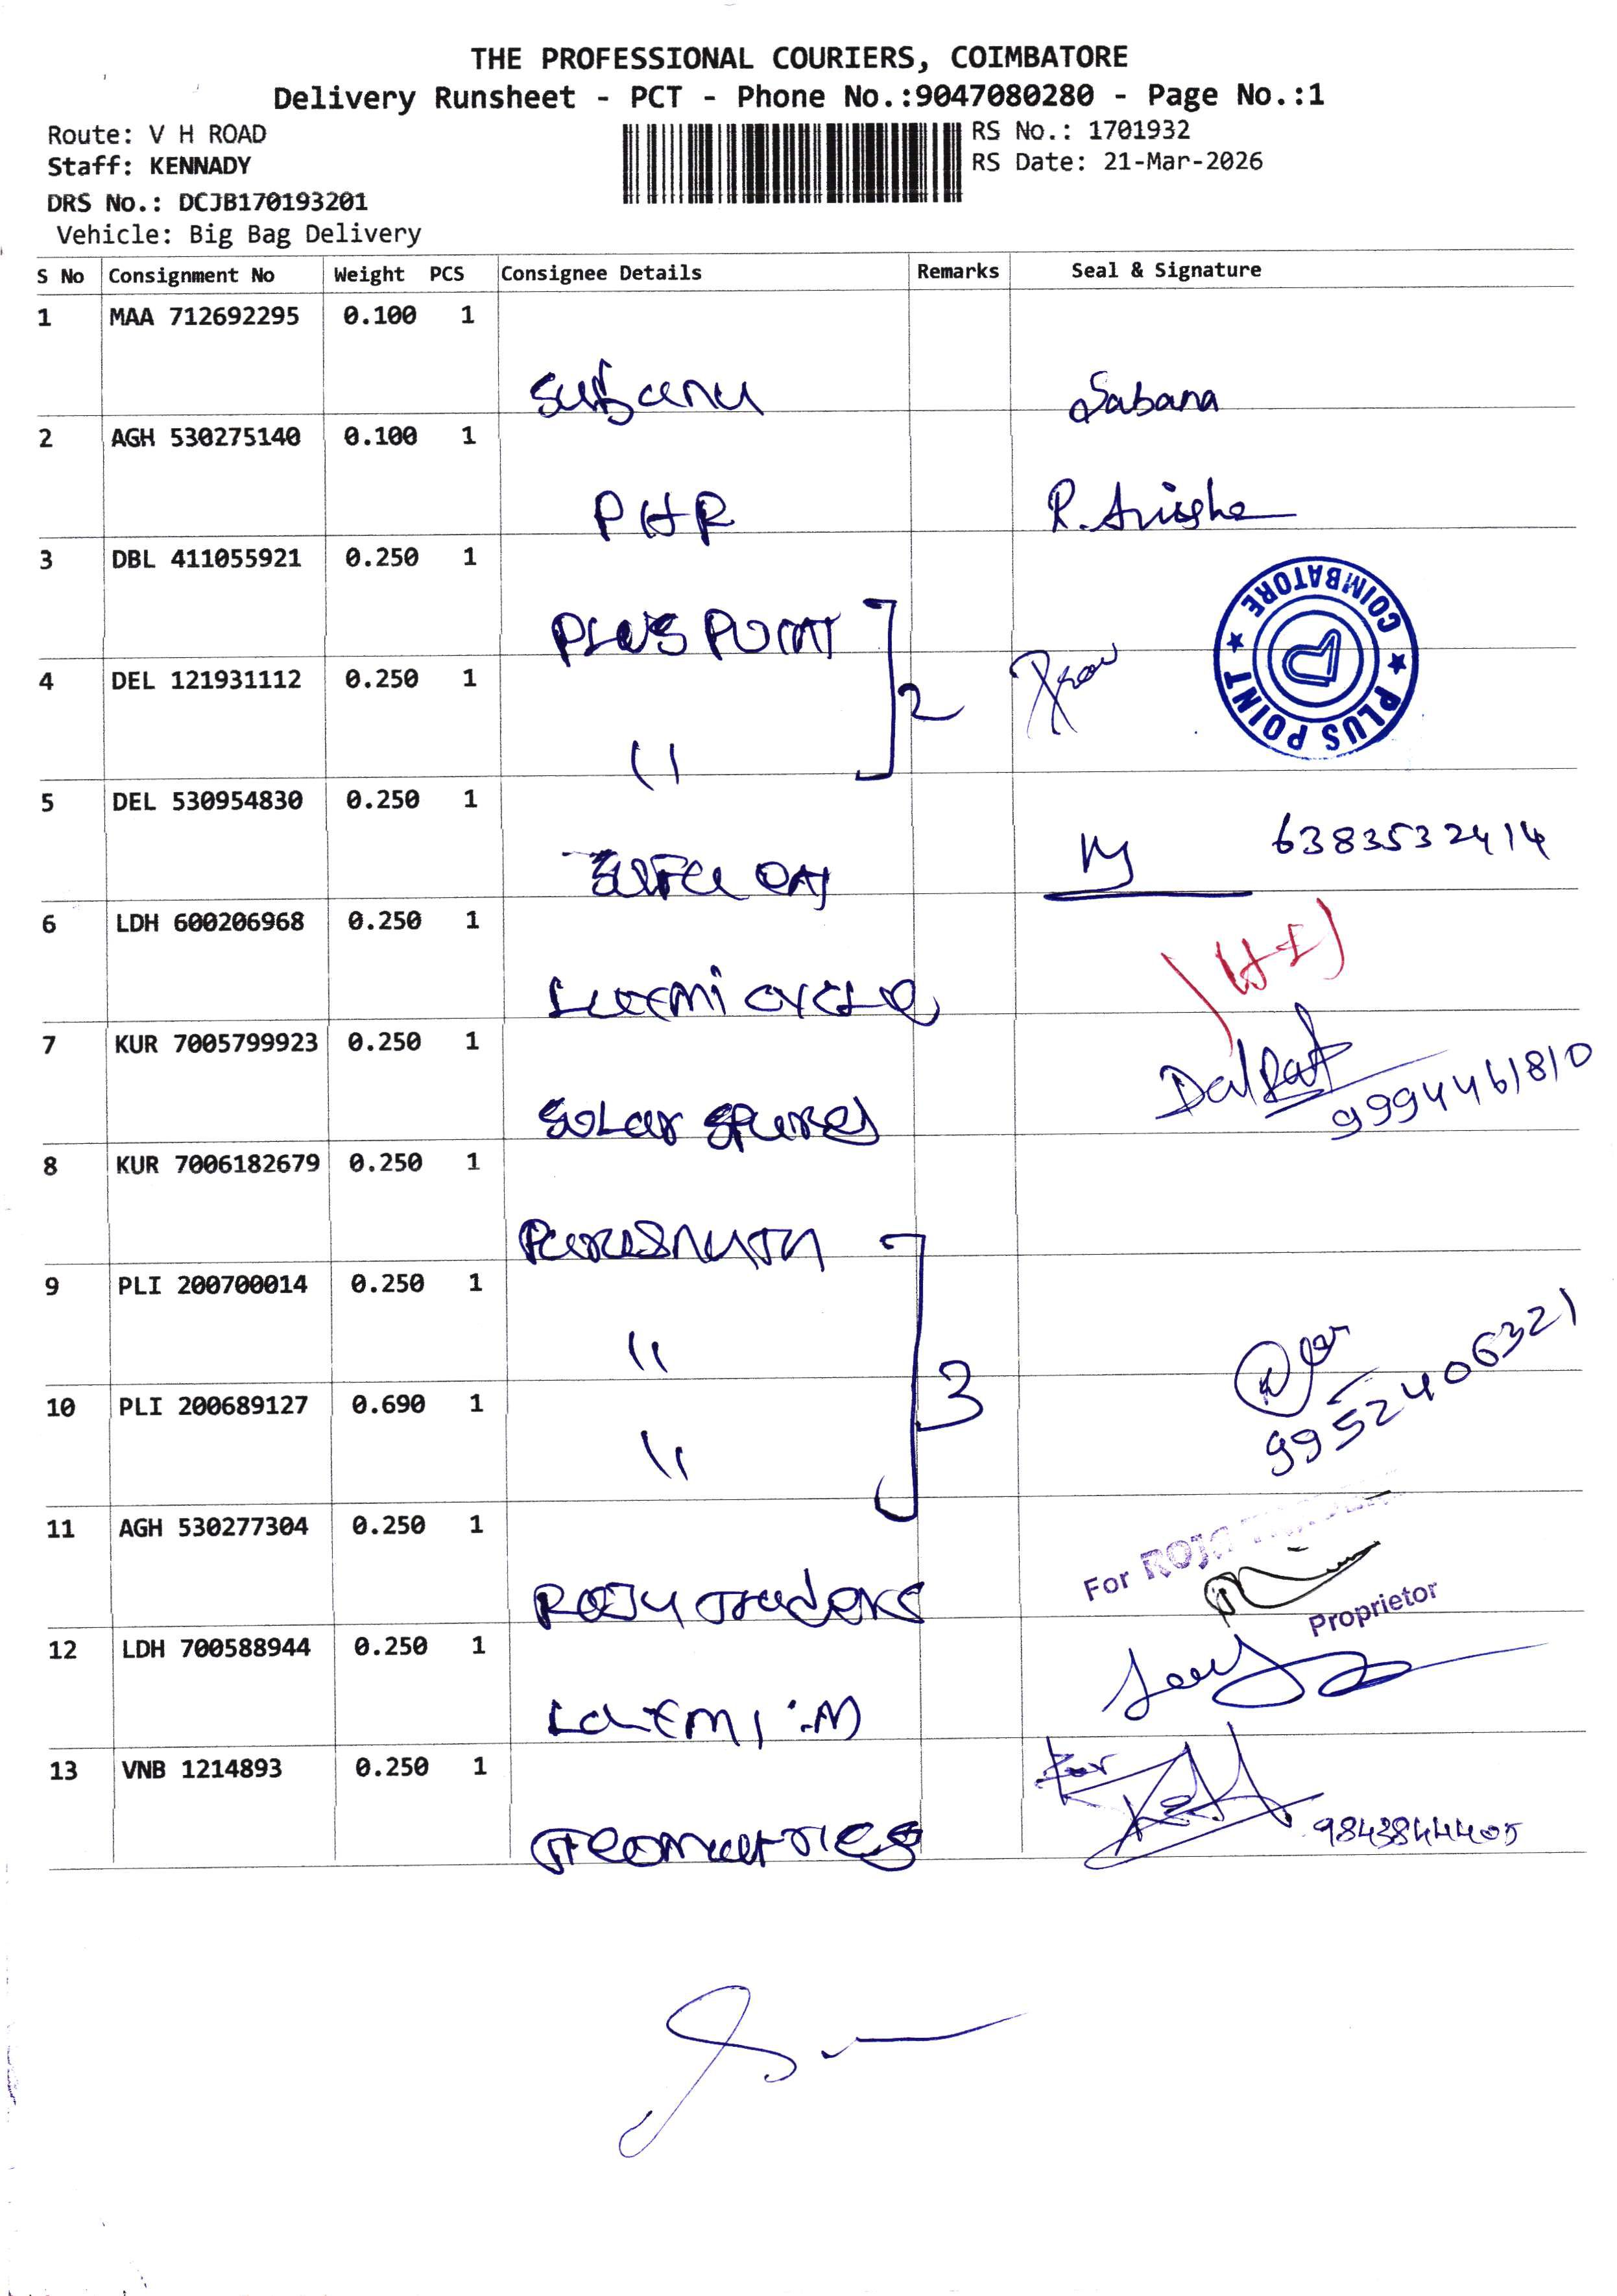 THE PROFESSIONAL COURIERS, COIMBATORE
Delivery Runsheet - PCT - Phone No.:9047080280 - Page No.:1
Route: V H ROAD
Staff: KENNADY
DRS No.: DCJB170193201
Vehicle: Big Bag Delivery
RS No.: 1701932
RS Date: 21-Mar-2026
S No Consignment No Weight PCS Consignee Details Remarks Seal & Signature
1 MAA 712692295 0.100 1
Sabana
2 AGH 530275140 0.100 1
PHR R.
3 DBL 411055921 0.250 1
PLUS POINT
★ PLUS POINT ★ COIMBATORE
4 DEL 121931112 0.250 1
2
"
5 DEL 530954830 0.250 1
6383532414
6 LDH 600206968 0.250 1
Luxmi cycle
7 KUR 7005799923 0.250 1
Dalpat
9994461810
Solar Spares
8 KUR 7006182679 0.250 1
Paresnath
9 PLI 200700014 0.250 1
"
10 PLI 200689127 0.690 1
3
9952406321
"
11 AGH 530277304 0.250 1
For ROJA
Proprietor
Roja Traders
12 LDH 700588944 0.250 1
13 VNB 1214893 0.250 1
For
9843844405